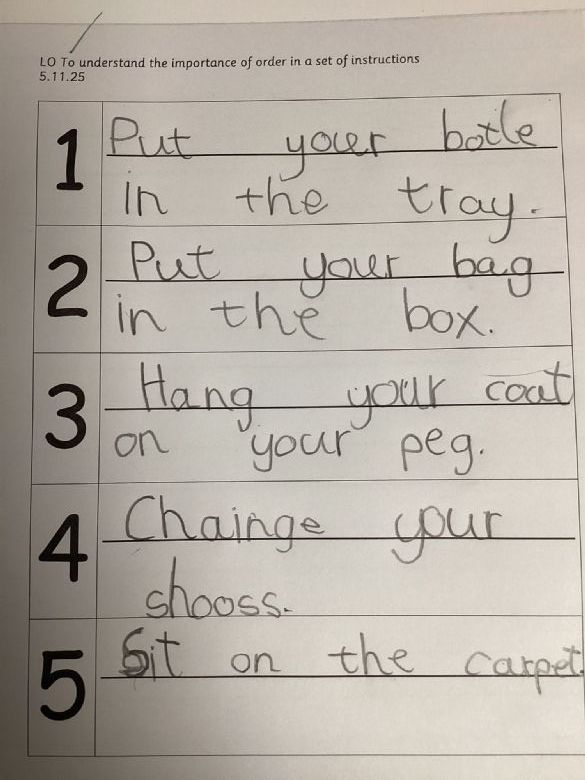 LO To understand the importance of order in a set of instructions
5.11.25
1 Put your botle
in the tray.
2 Put your bag
in the box.
3 Hang your coat
on your peg.
4 Chainge your
shooss.
5 Sit on the carpet.